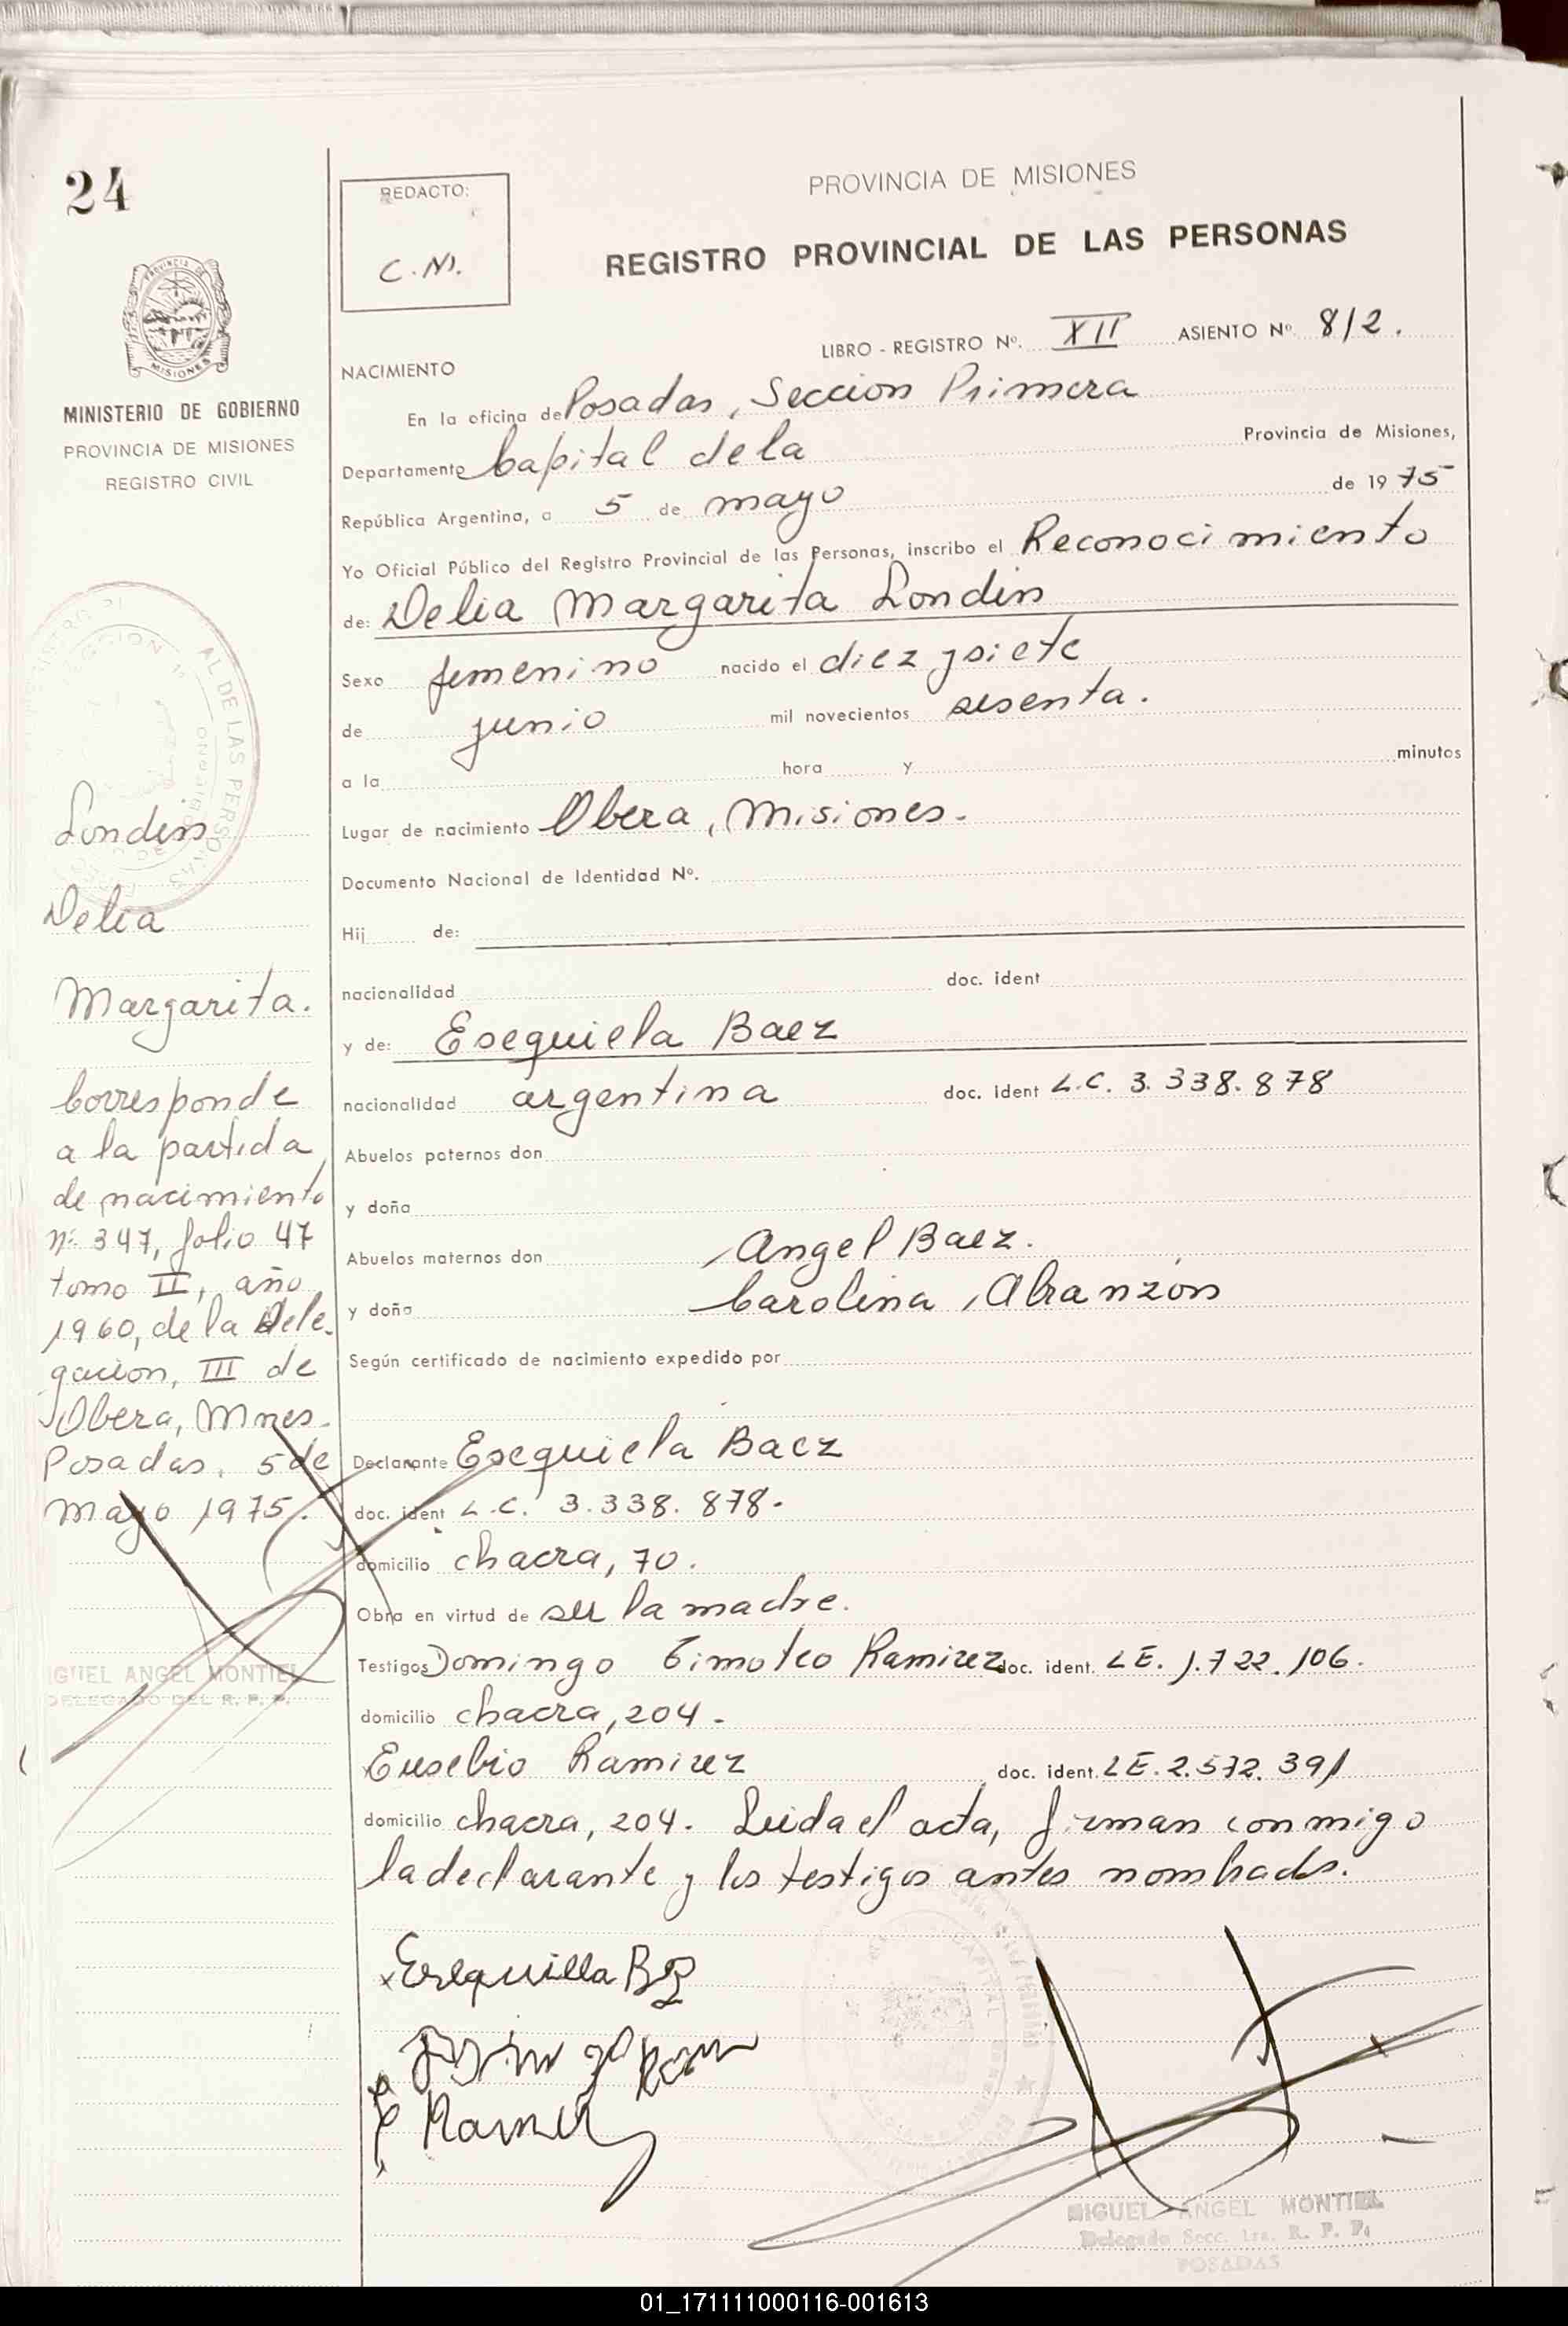 24
REDACTO:
C.M.
PROVINCIA DE MISIONES
REGISTRO PROVINCIAL DE LAS PERSONAS
LIBRO - REGISTRO Nº. XII ASIENTO Nº 812.
PROVINCIA DE
MISIONES
MINISTERIO DE GOBIERNO
PROVINCIA DE MISIONES
REGISTRO CIVIL
NACIMIENTO
En la oficina de Posadas, Seccion Primera
Departamento Capital de la Provincia de Misiones,
República Argentina, a 5 de mayo de 1975
Yo Oficial Público del Registro Provincial de las Personas, inscribo el Reconocimiento
de: Delia Margarita Londin
Sexo femenino nacido el diez y siete
de junio mil novecientos sesenta.
a la hora y minutos
Lugar de nacimiento Obera, Misiones.
Documento Nacional de Identidad Nº.
Hij de:
nacionalidad doc. ident
y de: Esequiela Baez
nacionalidad argentina doc. ident L.C. 3.338.878
Abuelos paternos don
y doña
Abuelos maternos don Angel Baez.
y doña Carolina Alranzon
Según certificado de nacimiento expedido por
Declarante Esequiela Baez
doc. ident L.C. 3.338.878.
domicilio chacra, 70.
Obra en virtud de ser la madre.
Testigos Domingo Timoteo Ramirez doc. ident. LE. 1.722.106.
domicilio chacra, 204.
Eusebio Ramirez doc. ident. LE. 2.572.391
domicilio chacra, 204. Leida el acta, firman conmigo
la declarante y los testigos antes nombrados.
Londin
Delia
Margarita.
Corresponde
a la partida
de nacimiento
nº 347, folio 47
tomo II, año
1960, de la Dele-
gacion, III de
Obera, Mnes.
Posadas, 5 de
mayo 1975.
GUEL ANGEL MONTIEL
DELEGADO DEL R. P. P.
MIGUEL ANGEL MONTIEL
Delegado Secc. 1ra. R. P. P.
POSADAS
01_171111000116-001613